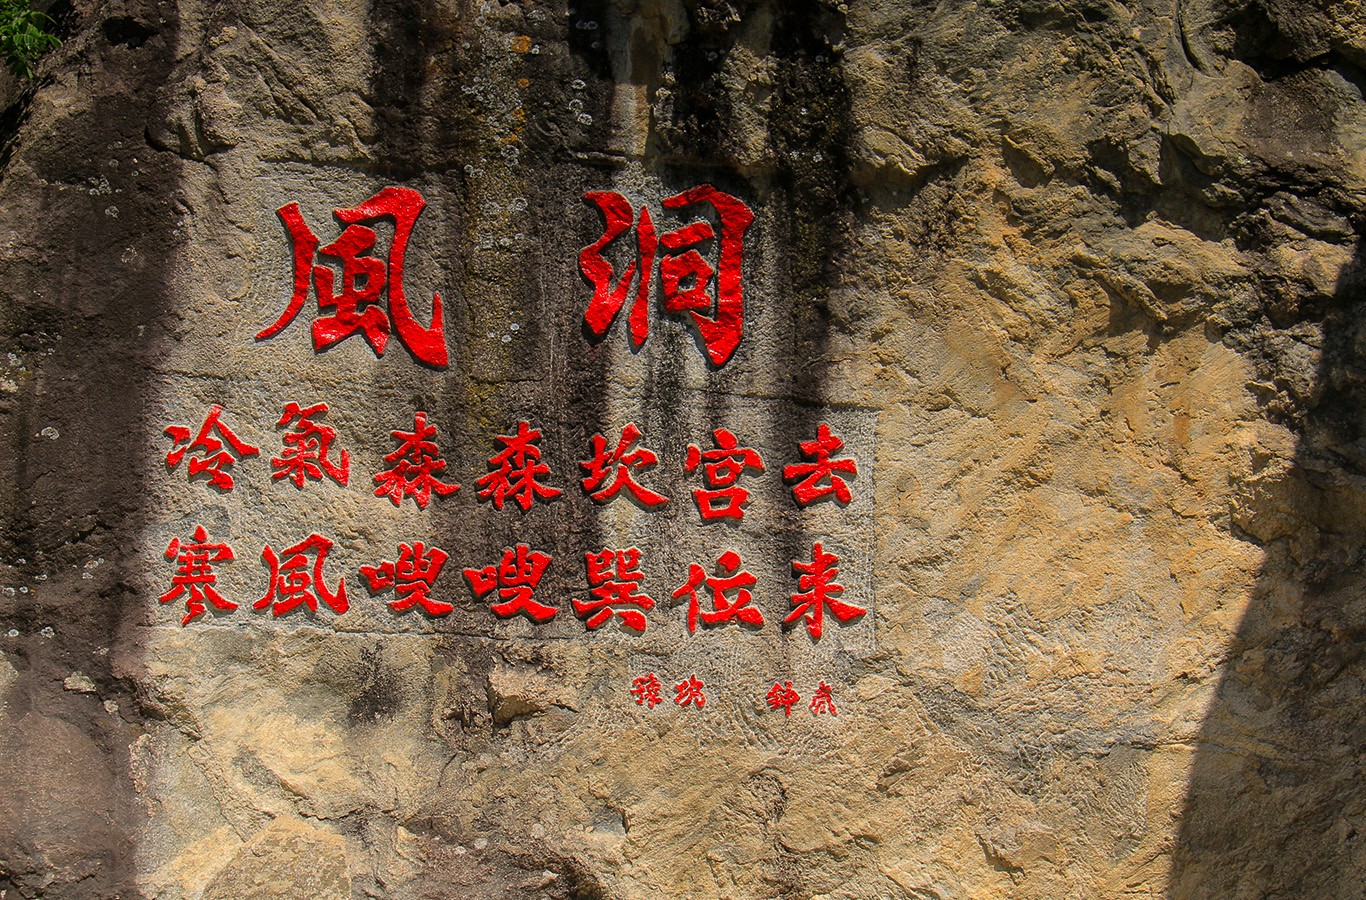 風洞
冷氣森森坎宮去
寒風嗖嗖巽位来